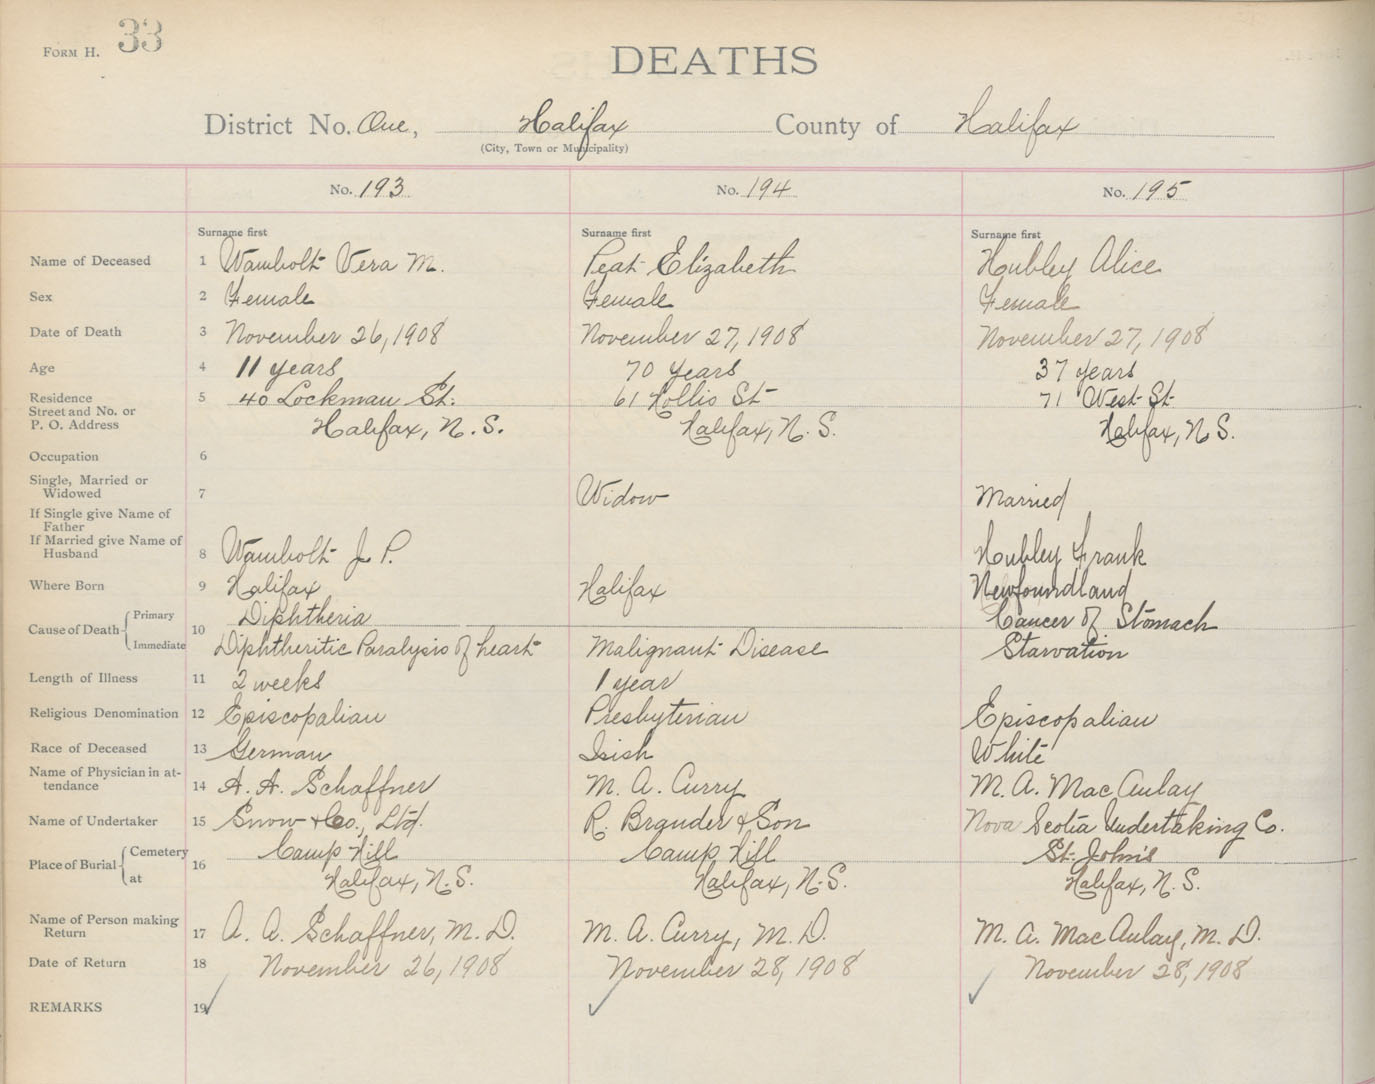 FORM H. 33
DEATHS
District No. One, Halifax County of Halifax
(City, Town or Municipality)
No. 193 No. 194 No. 195
Surname first Surname first Surname first
Name of Deceased 1 Wambolt Vera M. Peat Elizabeth Hubley Alice
Sex 2 Female Female Female
Date of Death 3 November 26, 1908 November 27, 1908 November 27, 1908
Age 4 11 years 70 years 37 years
Residence 5 40 Lockman St. 61 Hollis St 71 West St
Street and No. or
P. O. Address Halifax, N. S. Halifax, N. S. Halifax, N S.
Occupation 6
Single, Married or
Widowed 7 Widow Married
If Single give Name of
Father
If Married give Name of
Husband 8 Wambolt J. P. Hubley Frank
Where Born 9 Halifax Halifax Newfoundland
Primary Diphtheria Cancer of Stomach
Cause of Death 10
Immediate Diphtheritic Paralysis of heart Malignant Disease Starvation
Length of Illness 11 2 weeks 1 year
Religious Denomination 12 Episcopalian Presbyterian Episcopalian
Race of Deceased 13 German Irish White
Name of Physician in at-
tendance 14 A. A. Schaffner M. A. Curry M. A. MacAulay
Name of Undertaker 15 Snow & Co., Ltd. R. Brander & Son Nova Scotia Undertaking Co.
Cemetery Camp Hill Camp Hill St. John's
Place of Burial 16
at Halifax, N. S. Halifax, N. S. Halifax, N. S.
Name of Person making
Return 17 A. A. Schaffner, M. D. M. A. Curry, M. D. M. A. MacAulay, M. D.
Date of Return 18 November 26, 1908 November 28, 1908 November 28, 1908
REMARKS 19